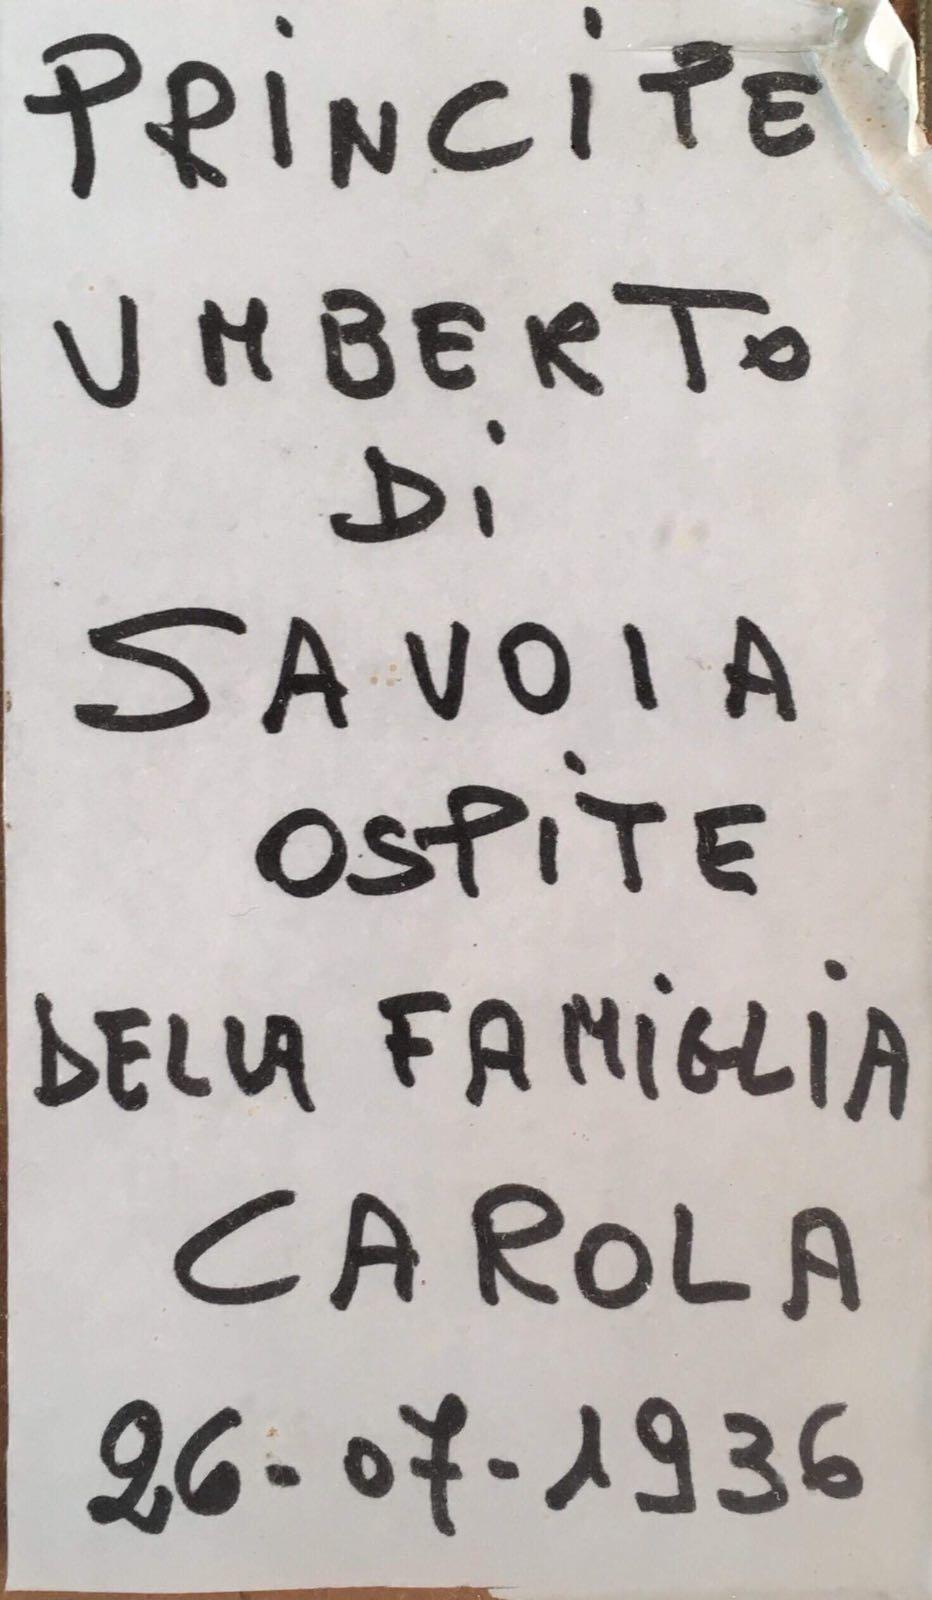 PRINCIPE
UMBERTO
Di
SAVOIA
OSPITE
DELLA FAMIGLIA
CAROLA
26-07-1936